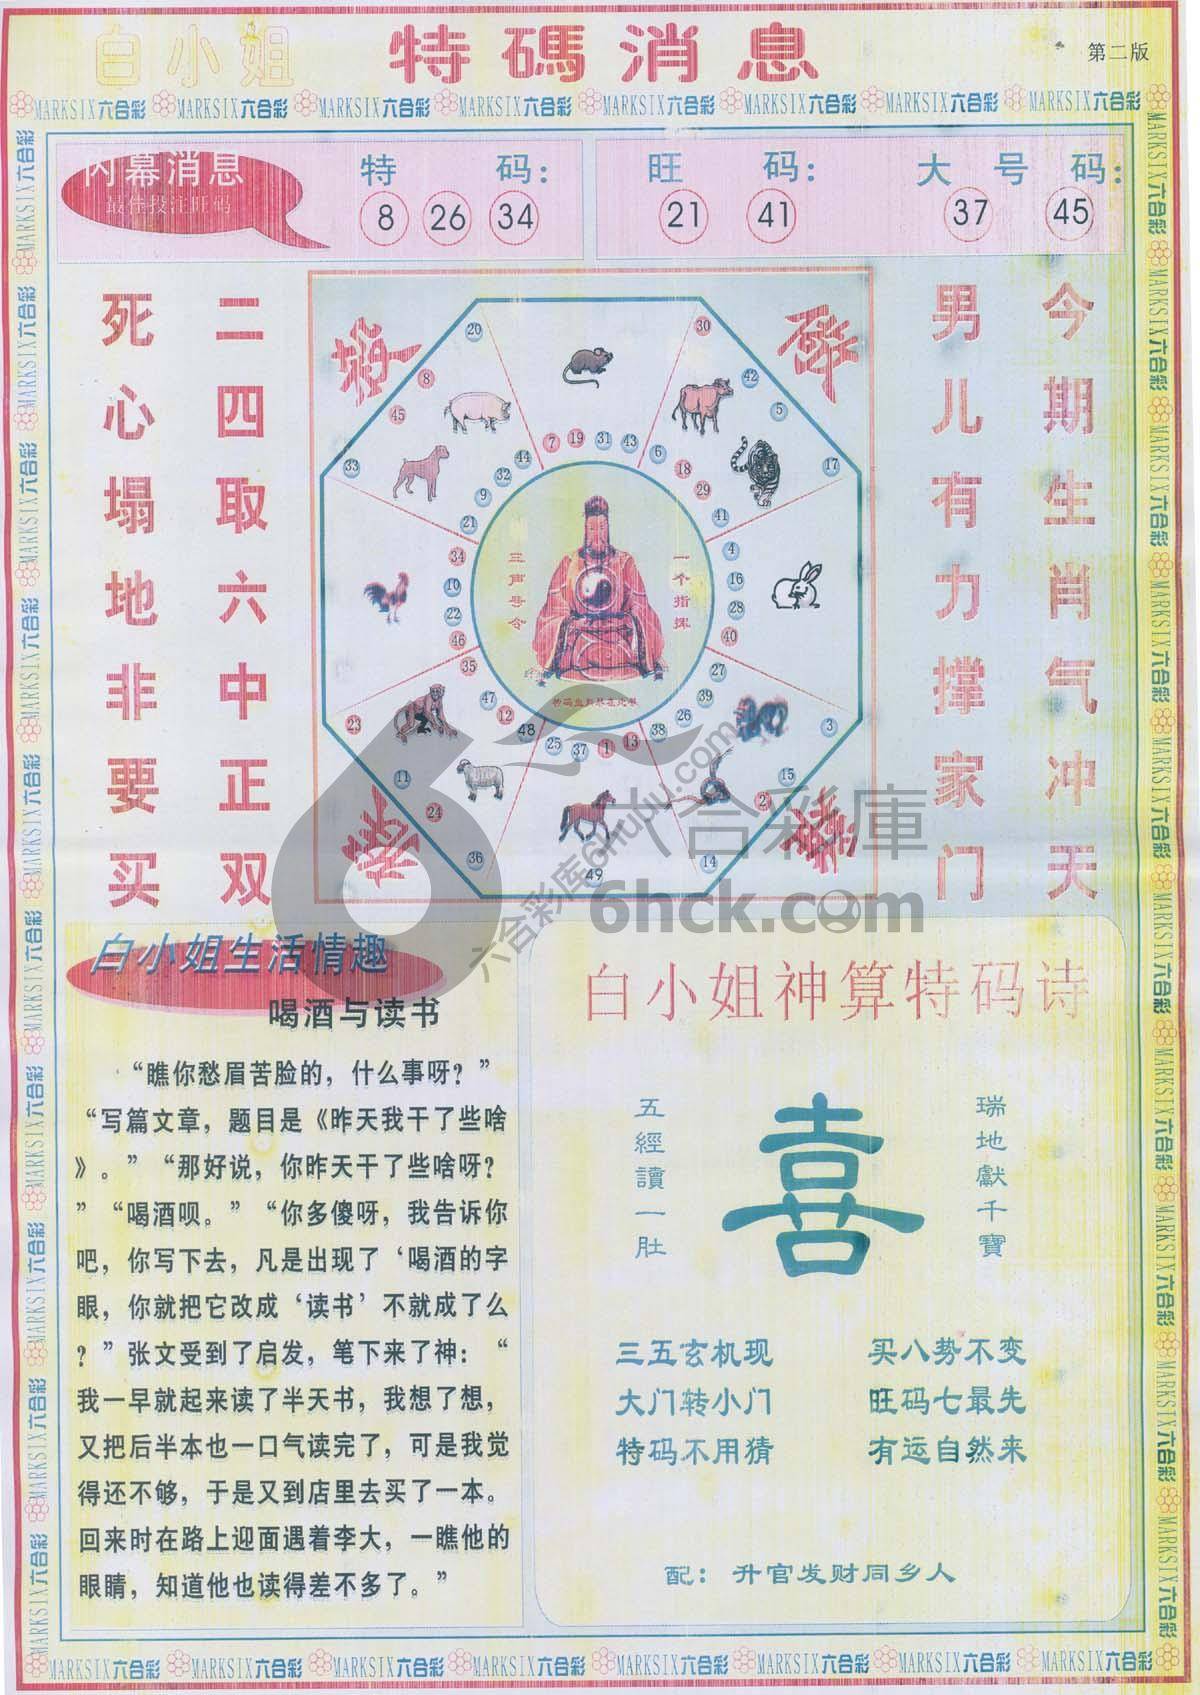 白小姐 特碼消息 第二版
MARKSIX六合彩 MARKSIX六合彩 MARKSIX六合彩 MARKSIX六合彩 MARKSIX六合彩 MARKSIX六合彩 MARKSIX六合彩 MARKSIX六合彩
内幕消息
最佳投注旺码
特码：
8 26 34
旺码：
21 41
大号码：
37 45
今期生肖气冲天
男儿有力撑家门
二四取六中正双
死心塌地非要买
20 30
8 42
45 5
33 17
7 19 31 43
44 6
32 18
9 29
21 41
34 4
10 16
22 28
46 40
35 27
47 39
12 26
48 38
25 37 1 13
23 3
11 15
24 2
36 14
49
一个指挥
三声号令
六合彩庫
6hck.com
六合彩库6hupu.com
白小姐生活情趣
喝酒与读书
“瞧你愁眉苦脸的，什么事呀？”
“写篇文章，题目是《昨天我干了些啥
》。”“那好说，你昨天干了些啥呀？
”“喝酒呗。”“你多傻呀，我告诉你
吧，你写下去，凡是出现了‘喝酒的字
眼，你就把它改成‘读书’不就成了么
？”张文受到了启发，笔下来了神：“
我一早就起来读了半天书，我想了想，
又把后半本也一口气读完了，可是我觉
得还不够，于是又到店里去买了一本。
回来时在路上迎面遇着李大，一瞧他的
眼睛，知道他也读得差不多了。”
白小姐神算特码诗
瑞地獻千寶
喜
五經讀一肚
三五玄机现 买八势不变
大门转小门 旺码七最先
特码不用猜 有运自然来
配：升官发财同乡人
MARKSIX六合彩 MARKSIX六合彩 MARKSIX六合彩 MARKSIX六合彩 MARKSIX六合彩 MARKSIX六合彩 MARKSIX六合彩 MARKSIX六合彩